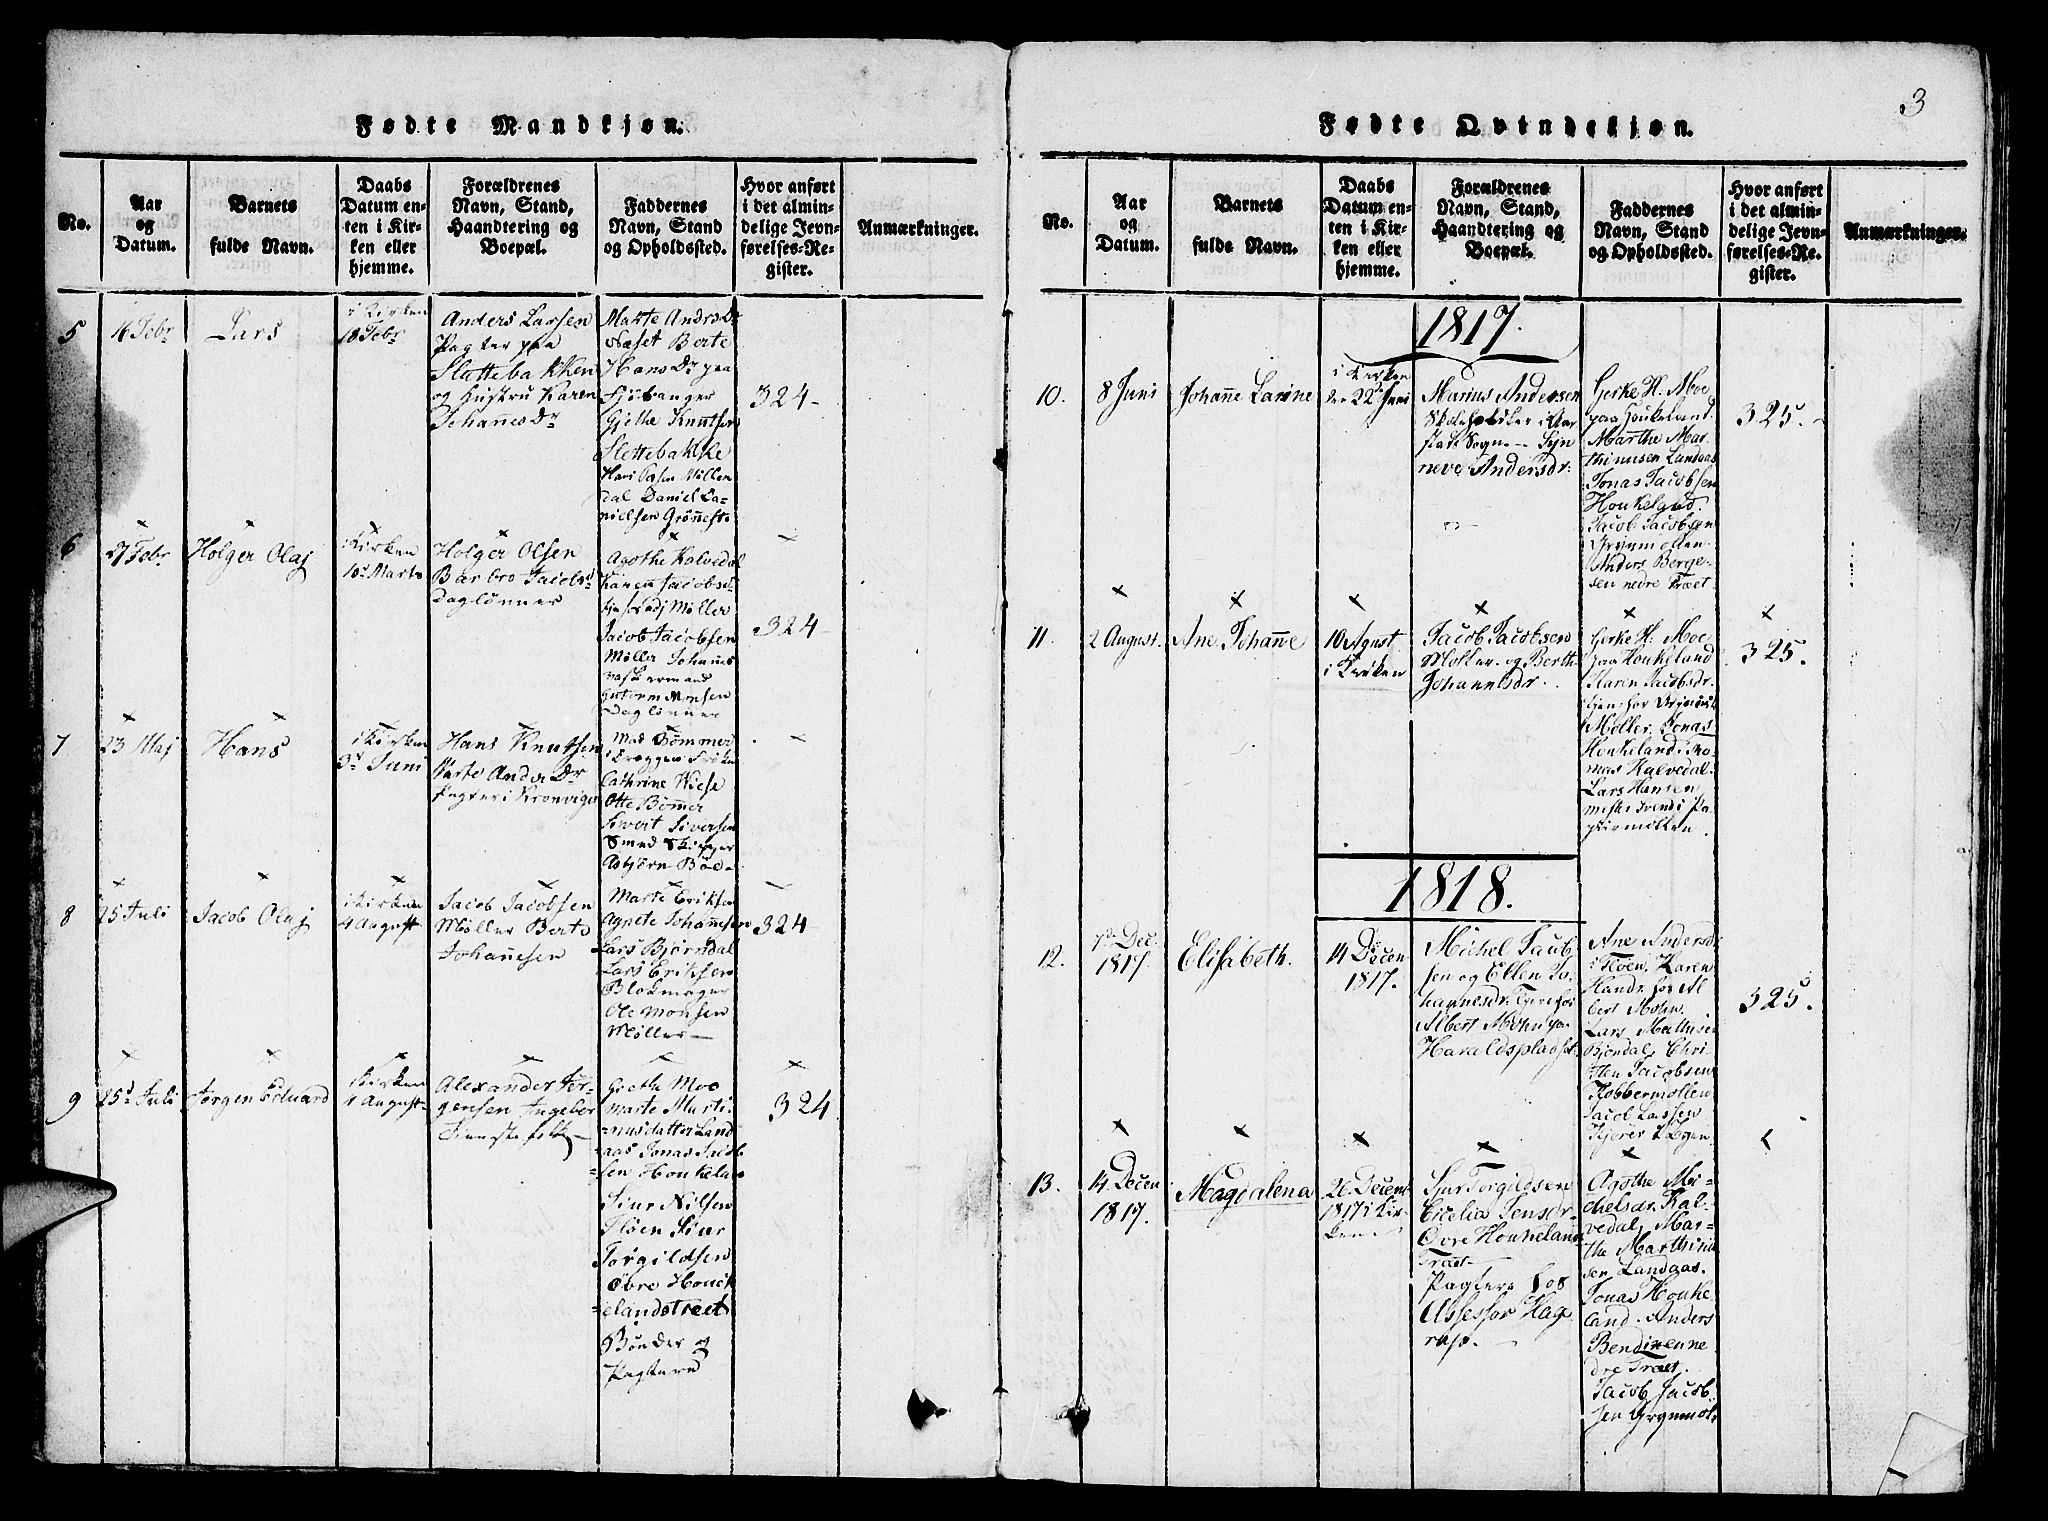 Fødte Mandkjøn.
No.
Aar
og
Datum.
Barnets
fulde Navn.
Daabs
Datum en-
ten i Kir-
ken eller
hjemme.
Forældrenes
Navn, Stand,
Haandtering og
Boepæl.
Faddernes
Navn, Stand
og Opholdssted.
Hvor anført
i det almin-
delige Jevn-
førelses-Re-
gister.
Anmærkninger.
5
16 Febr
Lars
i Kirken
18 Febr
Anders Larsen
Pagter paa
Slattebakken
og Hustru Karen
Johannes Dr
Marte Andrs Dr
Næset Berte
Hans Dr paa
Gjethe Knutsen
Slettebakke
dal Daniel Da-
nielsen Grönnest.
324
6
27 Febr
Holger Olaj
i Kirken
10 Marts
Holger Olsen
Barbro Jacobs
Daglönner
Agothe Kalvedal
Karen Jacobs
Möller
Jacob Jacobsen
Möller Johannes
Monsen
Daglönner
324
7
23 Maj
Hans
i Kirken
3d Juni
Hans Knutsen
Marte Anders Dr
Pagter i Kronvigen
i Dreggen
Cathrine Wiese
Otte Bömer
Sivert Siversen
Smed Skipper
Asbjörn Böe
8
25 Juli
Jacob Olaj
i Kirken
4 August
Jacob Jacobsen
Möller Berte
Johannesen
Marte Eriksen
Agnete Johannesen
Lars Björndal
Lars Eriksen
Blokmager
Ole Monsen
Möller
324
9
25d Juli
Jörgen Eduard
i Kirken
4 August
Alexander Jör-
gensen Ingebor
Grethe Moe
Marte Marti-
nusdatter Land
aas Jonas Jacob
sen Houkeland
Siur Nilsen
Flöen Siur
Torgildsen
Öbre Houck
elandstræet
Bönder og
Pagtere
324
Fødte Qvindekjøn.
3
No.
Aar
og
Datum.
Barnets
fulde Navn.
Daabs
Datum en-
ten i Kir-
ken eller
hjemme.
Forældrenes
Navn, Stand,
Haandtering og
Boepæl.
Faddernes
Navn, Stand
og Opholdssted.
Hvor anført
i det almin-
delige Jevn-
førelses-Re-
gister.
Anmærkninger.
1817.
10.
8 Juni
Johanne Larine
i Kirken
den 22de Juni
Marius Andersen
Skoleholder i Aar
stads Sogn Syn
neve Andersdr:
Gerke H. Moe
paa Houkeland.
Marthe Mar
thinusen Landaas
Jonas Jacobsen
Houkeland.
Jacob Jacobsen
Grynmollen
Anders Berge-
sen nedre Træet
325.
11.
2 August.
Ane Johanne
10 August
i Kirken
Jacob Jacobsen
Moller og Berthe
Johannesdr.
Gerke H. Moe
paa Houkeland
Karen Jacobsdr.
Möller. Jonas
Houkeland. Tho
mas Kalvedal.
Lars Hansen
mester Svend i Pa
pirmollen.
325.
1818.
12.
7de Dec:
1817.
Elisabeth.
14 Decen
1817.
Michel Jacob
sen og Ellen Jo
hannesdr. Tjene hos
Albert Mohn paa
Haraldspladset.
Ane Andersdr
i Floen, Karen
Hansdr. for Al
bert Mohn.
Lars Mathise
Bjondal, Chri-
sten Jacobsen
Kobbermollen
Jacob Lassen
325.
13.
14 Decen
1817.
Magdalena
26 Decem
1817 i Kir-
ken.
Sjur Torgildsen
Cicelia Jensdr.
Ovre Houkeland
Træet
Pagtere hos
Assessor Hag
rup.
Agothe Mi-
chelsdr. Kal-
vedal, Mar-
the Marthinu
sen Landaas.
Jonas Houke
land. Anders
Bendixen ne
dre Træet.
Jacob Jacob
sen Grynmol.